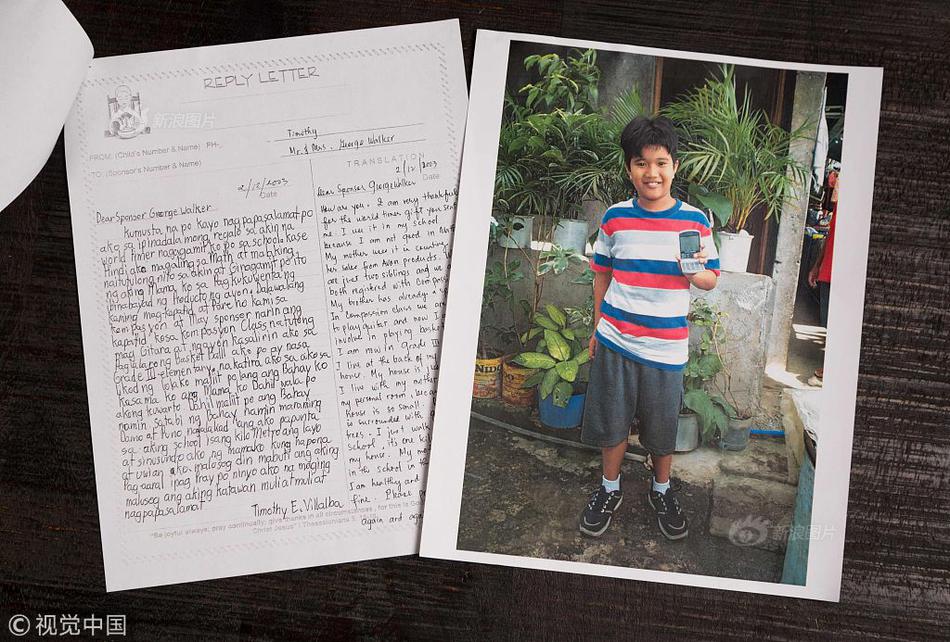 REPLY LETTER
新浪图片
FROM: (Child's Number & Name) PH-
Timothy
TO: (Sponsor's Number & Name)
Mr. & Mrs. George Walker
2/12/2003
Date
Dear Sponser George Walker
Kumusta na po kayo nag papasalamat po
ako sa ipinadala mong regalo sa akin na
world timer nagagamit ko po sa school kase
Hindi ako magaling sa math at malaking
naitutulong nito sa akin at Ginagamit po ito
ng aking Mama ko sa Pag kukuwenta ng
binabayad ng Producto ng ayon, Dalawalang
kaming mag-kapatid at Pare ho kami sa
kompasyon at May sponser narin ang
kapatid kosa kompasyon Class natutong
mag Gitara at ngayon kasalirin ako sa
Paglalarong Basket Ball ako po ay nasa
Grade III-elementary, na katira ako sa
likod ng lolako maliit po lang ang Bahay ko
kasama ko ang Mama ko Dahil wala po
akong kuwarto Dahil maliit po ang Bahay
namin satabi ng Bahay namin maraming
Damo at Puno naglalakad lang ako papunta
sa aking school isang Kilo Metro ang layo
at sinusundo ako ng mamako kung hapon
at uwian ako. malusog din mabuti ang aking
Pag aaral ipag Pray po ninyo ako na maging
malusog ang aking katawan muli at muli at
nagpapasalamat
Timothy E. Villalba
TRANSLATION
2/12/2003
Date
Dear Sponser George Walker
How are you. I am very thankful
for the world timer gift you sent
me. I use it in my school
because I am not good in Math
My mother uses it in country
her sales from Avon products. We
are just two siblings and we are
both registered with Compassion
My brother has already a
In Compassion class we are
to play guitar and now I
involve in playing basket
I am now in Grade III
I live at the back of my
house. My house is
I live with my mother
my personal room, because
house is so small
is surrounded with
trees. I just walk
school, its one kil
my house. My mo
in the school in the
I am healthy and
fine. Please
Again and again
"Be joyful always; pray continually; give thanks in all circumstances, for this is
Christ Jesus" I Thessalonians
NIDO
新浪图片
© 视觉中国